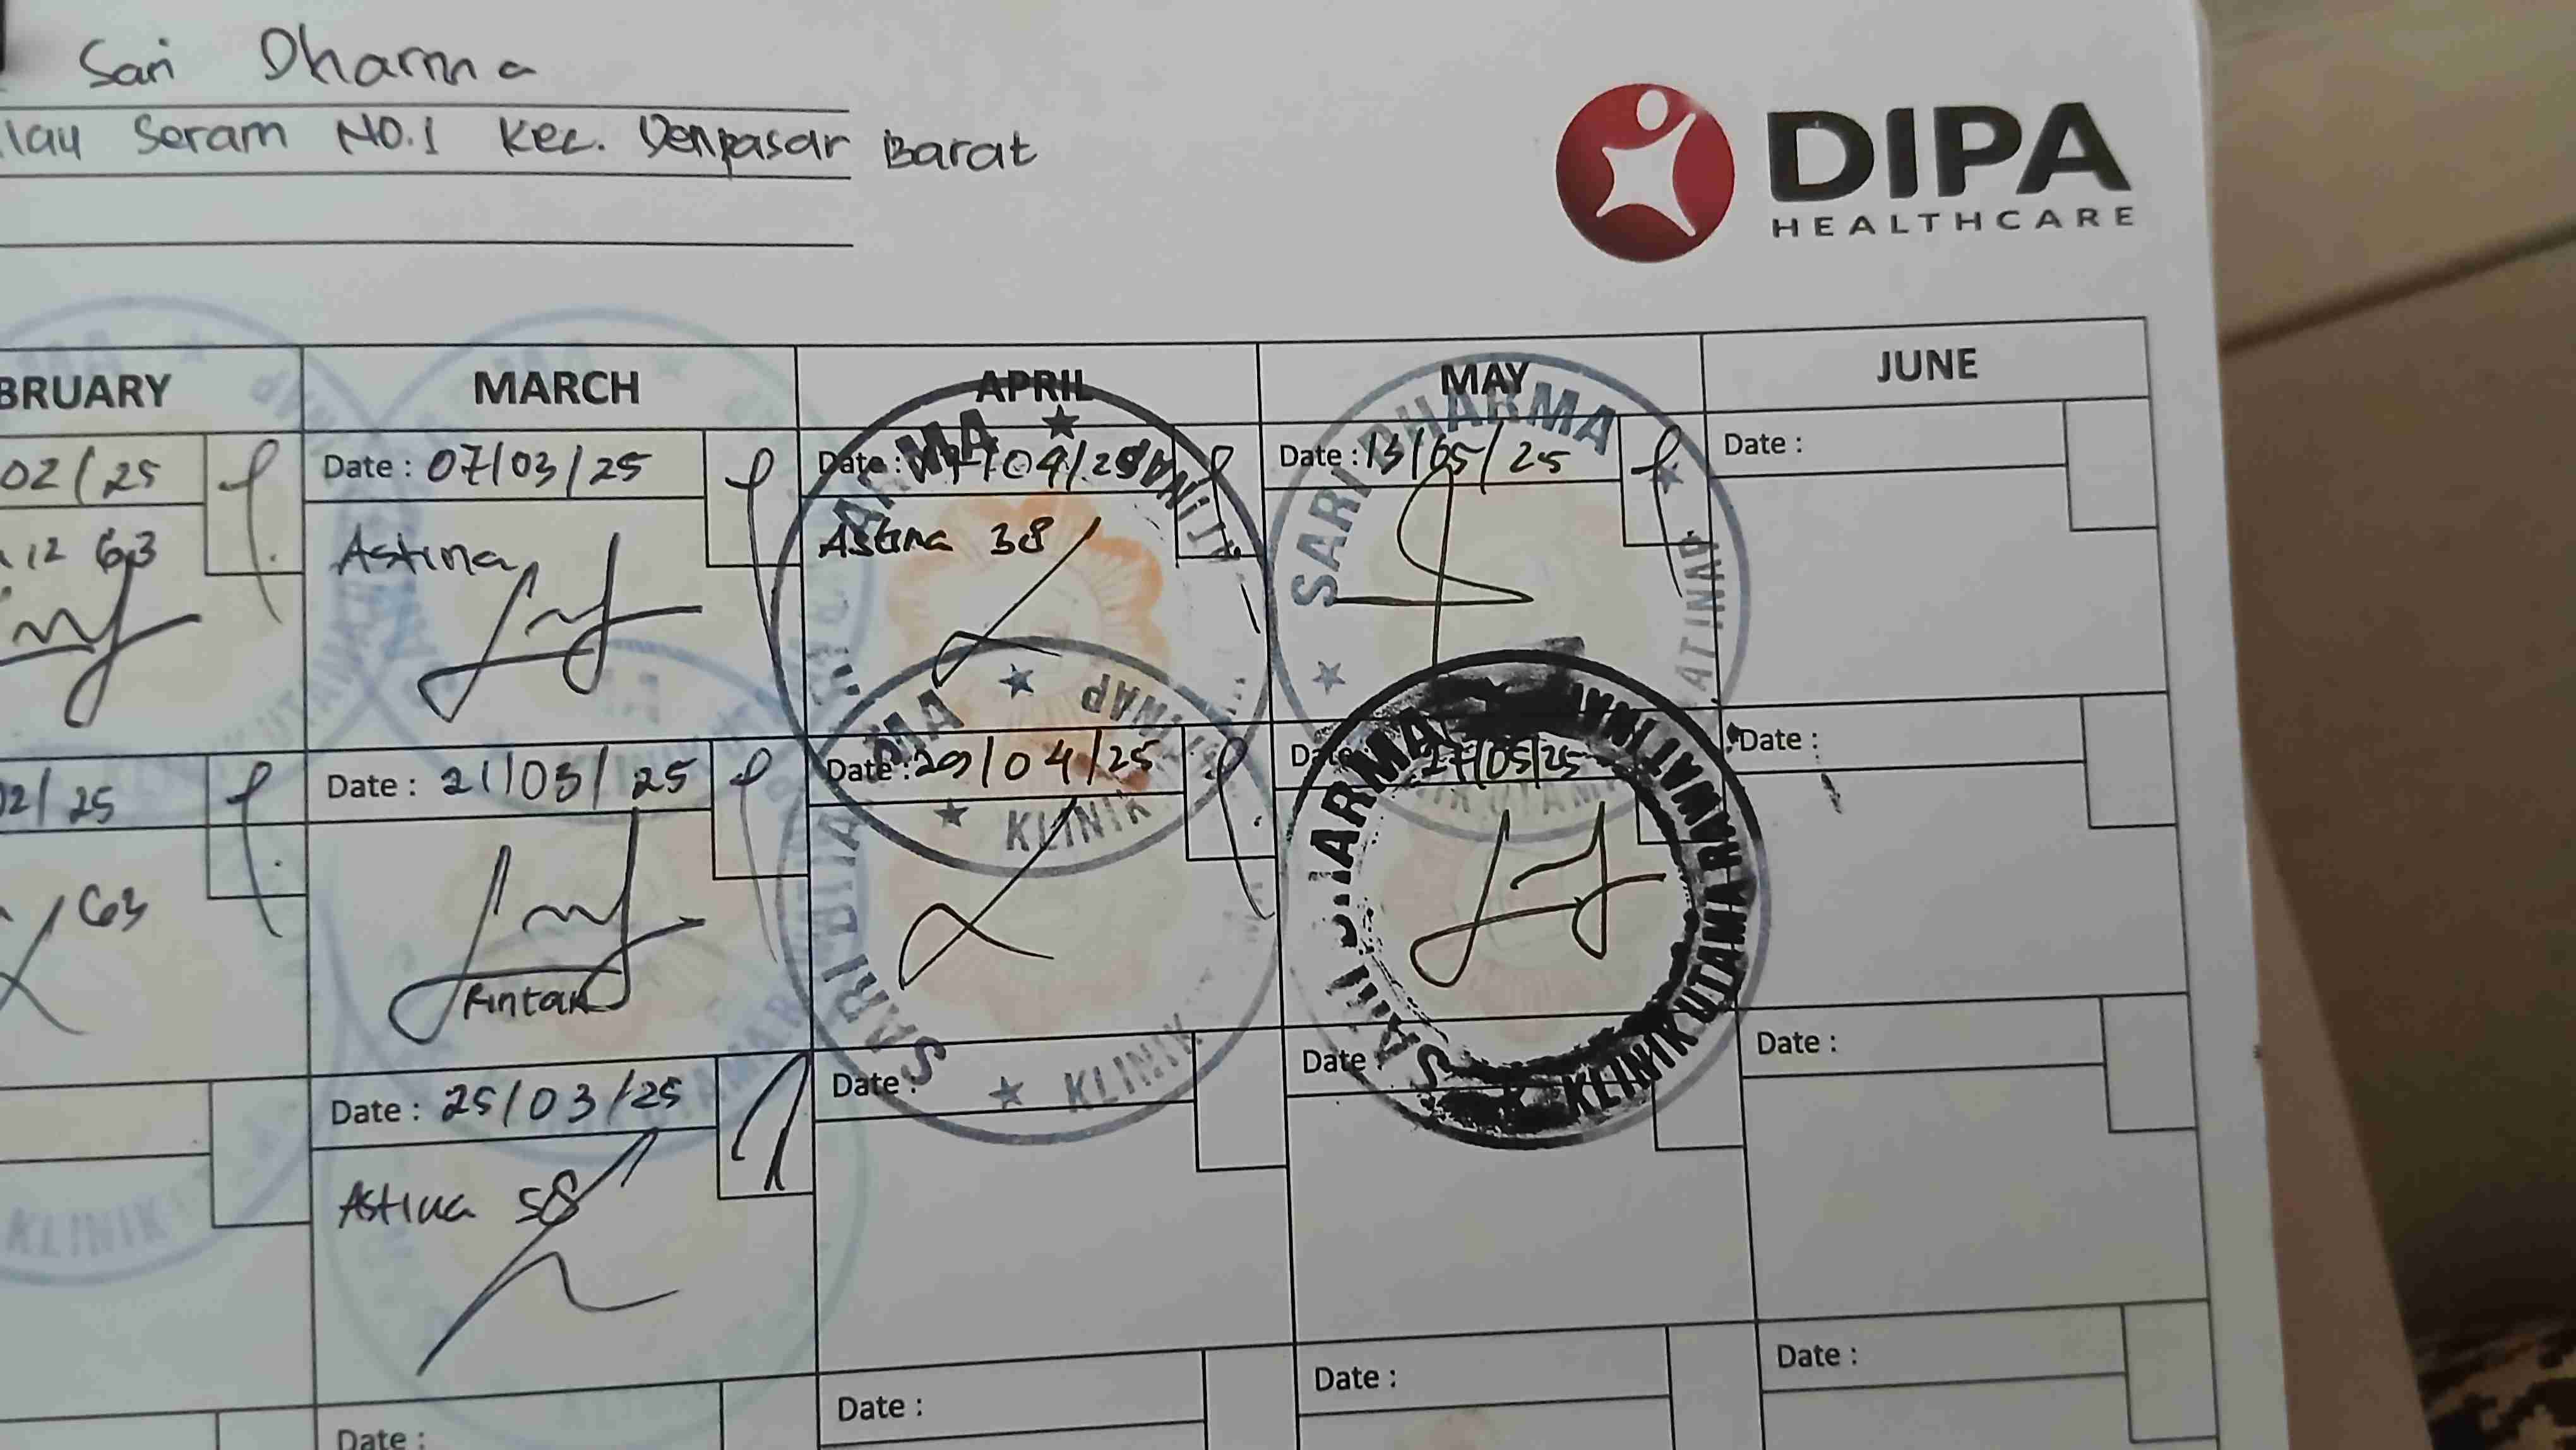 Sari Dharma
lau Seram NO.1 Kec. Denpasar Barat
DIPA
HEALTHCARE
BRUARY
MARCH
APRIL
MAY
JUNE
02/25
12 63
Date : 07/03/25
Astina
Date : /04/25
Astina 38
Date : 13/05/25
Date :
02/25
63
Date : 21/03/25
Rintan
Date : 29/04/25
Date : 27/05/25
Date :
Date : 25/03/25
Astina 58
Date :
Date :
Date :
Date :
Date :
Date :
Date :
SARI DHARMA
KLINIK UTAMA RAWAT INAP
SARI DHARMA
KLINIK UTAMA RAWAT INAP
SARI DHARMA
KLINIK
KLINIK
KLINIK